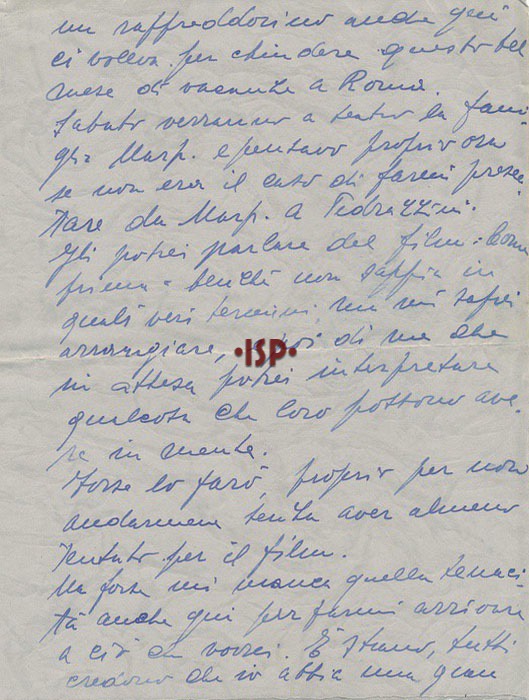 un raffreddorino anche qui
ci voleva per chiudere questo bel
mese di vacanze a Roma.
Sabato verranno a teatro la fami-
glia Marp. e pensavo proprio ora
se non era il caso di farmi presen-
tare da Marp. a Pedrazzini.
Gli potrei parlare del film: Come
prima - benché non sappia in
quali veri termini, ma mi saprei
arrangiare, e poi di me che
in attesa potrei interpretare
qualcosa che loro possono ave-
re in mente.
Forse lo farò, proprio per non
andarmene senza aver almeno
tentato per il film.
Ma forse mi manca quella tenaci-
tà anche qui per farmi arrivare
a ciò che vorrei. È strano, tutti
credono che io abbia una gran
•ISP•